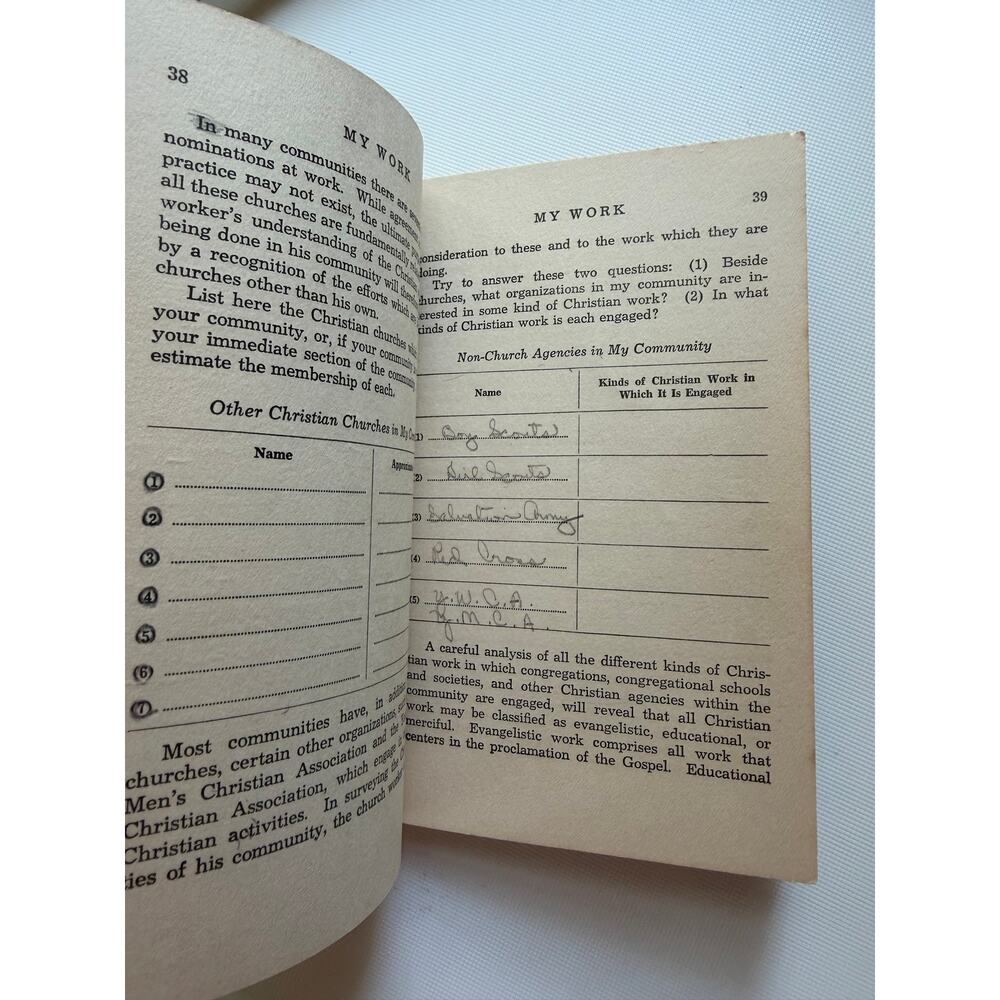 38
MY WORK
In many communities there are
nominations at work. While agreement
practice may not exist, the ultimate
all these churches are fundamentally
worker's understanding of the Christian
being done in his community will
by a recognition of the efforts which are
churches other than his own.
List here the Christian churches
your community, or, if your community
your immediate section of the community
estimate the membership of each.
Other Christian Churches in My
Name
(1)
(2)
(3)
(4)
(5)
(6)
(7)
Most communities have, in
churches, certain other organizations,
Men's Christian Association and the
Christian Association, which engage
Christian activities. In surveying the
ties of his community, the church
39
MY WORK
consideration to these and to the work which they are
doing.
Try to answer these two questions: (1) Beside
churches, what organizations in my community are in-
terested in some kind of Christian work? (2) In what
kinds of Christian work is each engaged?
Non-Church Agencies in My Community
Name
Kinds of Christian Work in
Which It Is Engaged
(1) Boy Scouts
(2) Girl Scouts
(3) Salvation Army
(4) Red Cross
(5) Y.W.C.A.
Y.M.C.A.
A careful analysis of all the different kinds of Chris-
tian work in which congregations, congregational schools
and societies, and other Christian agencies within the
community are engaged, will reveal that all Christian
work may be classified as evangelistic, educational, or
merciful. Evangelistic work comprises all work that
centers in the proclamation of the Gospel. Educational